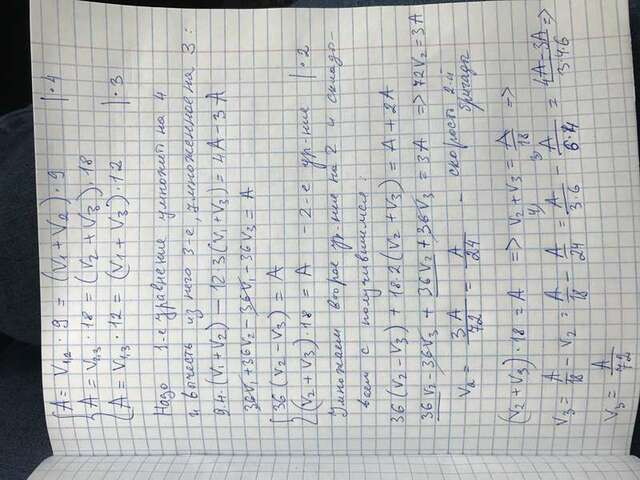 A = V1,2 · 9 = (V1 + V2) · 9 | · 4
A = V2,3 · 18 = (V2 + V3) · 18
A = V1,3 · 12 = (V1 + V3) · 12 | · 3
Надо 1-е уравнение умножить на 4
и вычесть из него 3-е, умноженное на 3:
9·4·(V1+V2) - 12·3(V1+V3) = 4A - 3A
36V1+36V2-36V1-36V3 = A
36(V2-V3) = A
(V2+V3)·18 = A - 2-е ур-ние | · 2
Умножаем второе ур-ние на 2 и складо-
ваем с получившимся:
36(V2-V3) + 18·2(V2+V3) = A + 2A
36V2-36V3 + 36V2+36V3 = 3A => 72V2 = 3A
V2 = 3A/72 = A/24 - скорость 2-й бригады
(V2+V3)·18 = A => V2+V3 = A/18 =>
V3 = A/18 - V2 = A/18 - A/24 = 4) A/3·6 - 3) A/6·4 = 4A-3A/3·4·6 =>
V3 = A/72